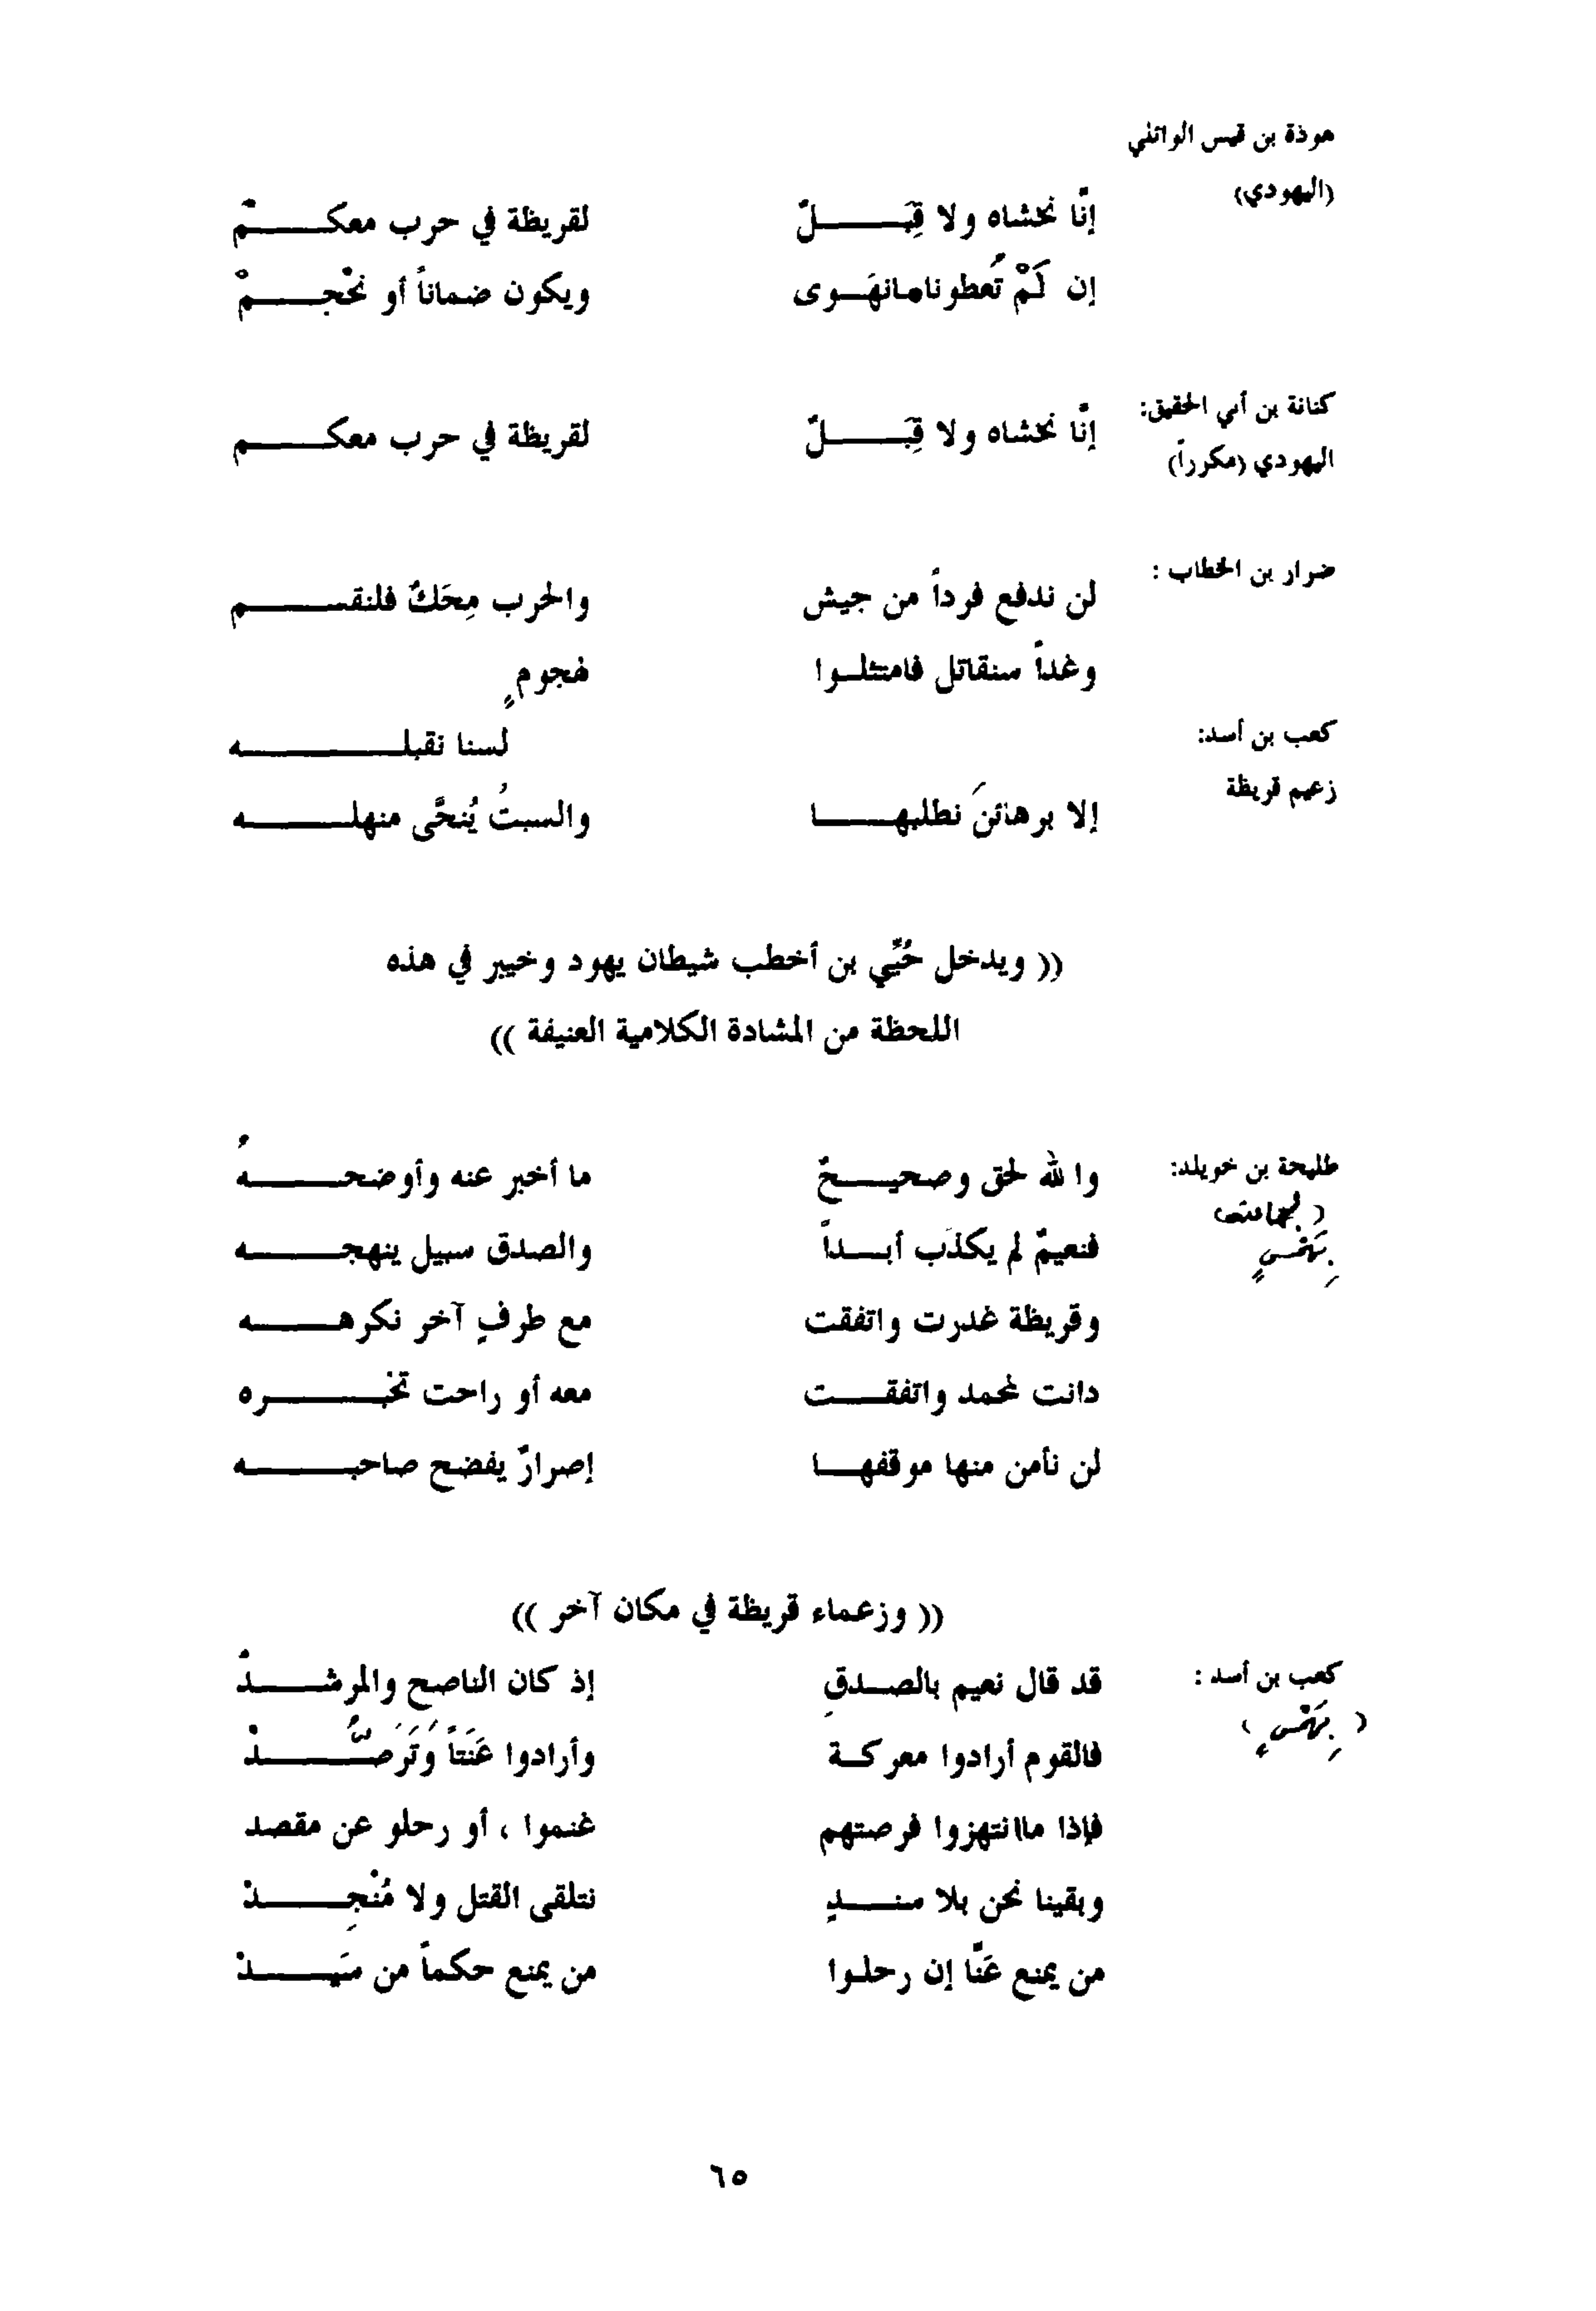 هوذة بن قيس الوائلي
(اليهودي)
إنّا نخشاه ولا قِبَـــــلٌ لقريظة في حرب معكـــــمْ
إن لَمْ تُعطونامانهَـوى ويكون ضماناً أو نحْجـــــمْ
كنانة بن أبي الحقيق:
إنّا نخشاه ولا قِبَـــــلٌ لقريظة في حرب معكـــــم
اليهودي (مكرراً)
ضرار بن الخطاب :
لن ندفع فرداً من جيش والحرب مِحَكٌ فلنقســـــم
وغداً سنقاتل فامتثلـوا لهجومٍ
كعب بن أسد: لسنا نقبلـــــــه
زعيم قريظة
إلا برهائنَ نطلبهـــا والسبتُ يُنحَّى منهلـــــه
(( ويدخل حُيّي بن أخطب شيطان يهود وخيبر في هذه
اللحظة من المشادة الكلامية العنيفة ))
طليحة بن خويلد: والله لحق وصحيـــحٌ ما أخبر عنه وأوضحـــــهُ
فنعيمٌ لم يكذَب أبــداً والصدق سبيل ينهجـــــه
بِهَمْسٍ
وقريظة غدرت واتفقت مع طرفٍ آخر نكرهـــــه
دانت لمحمد واتفقـــت معه أو راحت تخبـــــره
لن نأمن منها موقفهــا إصرارٌ يفضح صاحبـــــه
(( وزعماء قريظة في مكان آخر ))
كعب بن أسد : قد قال نعيم بالصــدقِ إذ كان الناصح والمرشـــدُ
( بِهَمْسٍ )
فالقوم أرادوا معركـة وأرادوا عَنَتاً وَتَرَصُّـــــدْ
فإذا ماانتهزوا فرصتهم غنموا ، أو رحلو عن مقصد
وبقينا نحن بلا سنـــدٍ نتلقى القتل ولا مُنْجِـــــدْ
من يمنع عَنَّا إن رحلوا من يمنع حكماً من سَيـــــدْ
٦٥